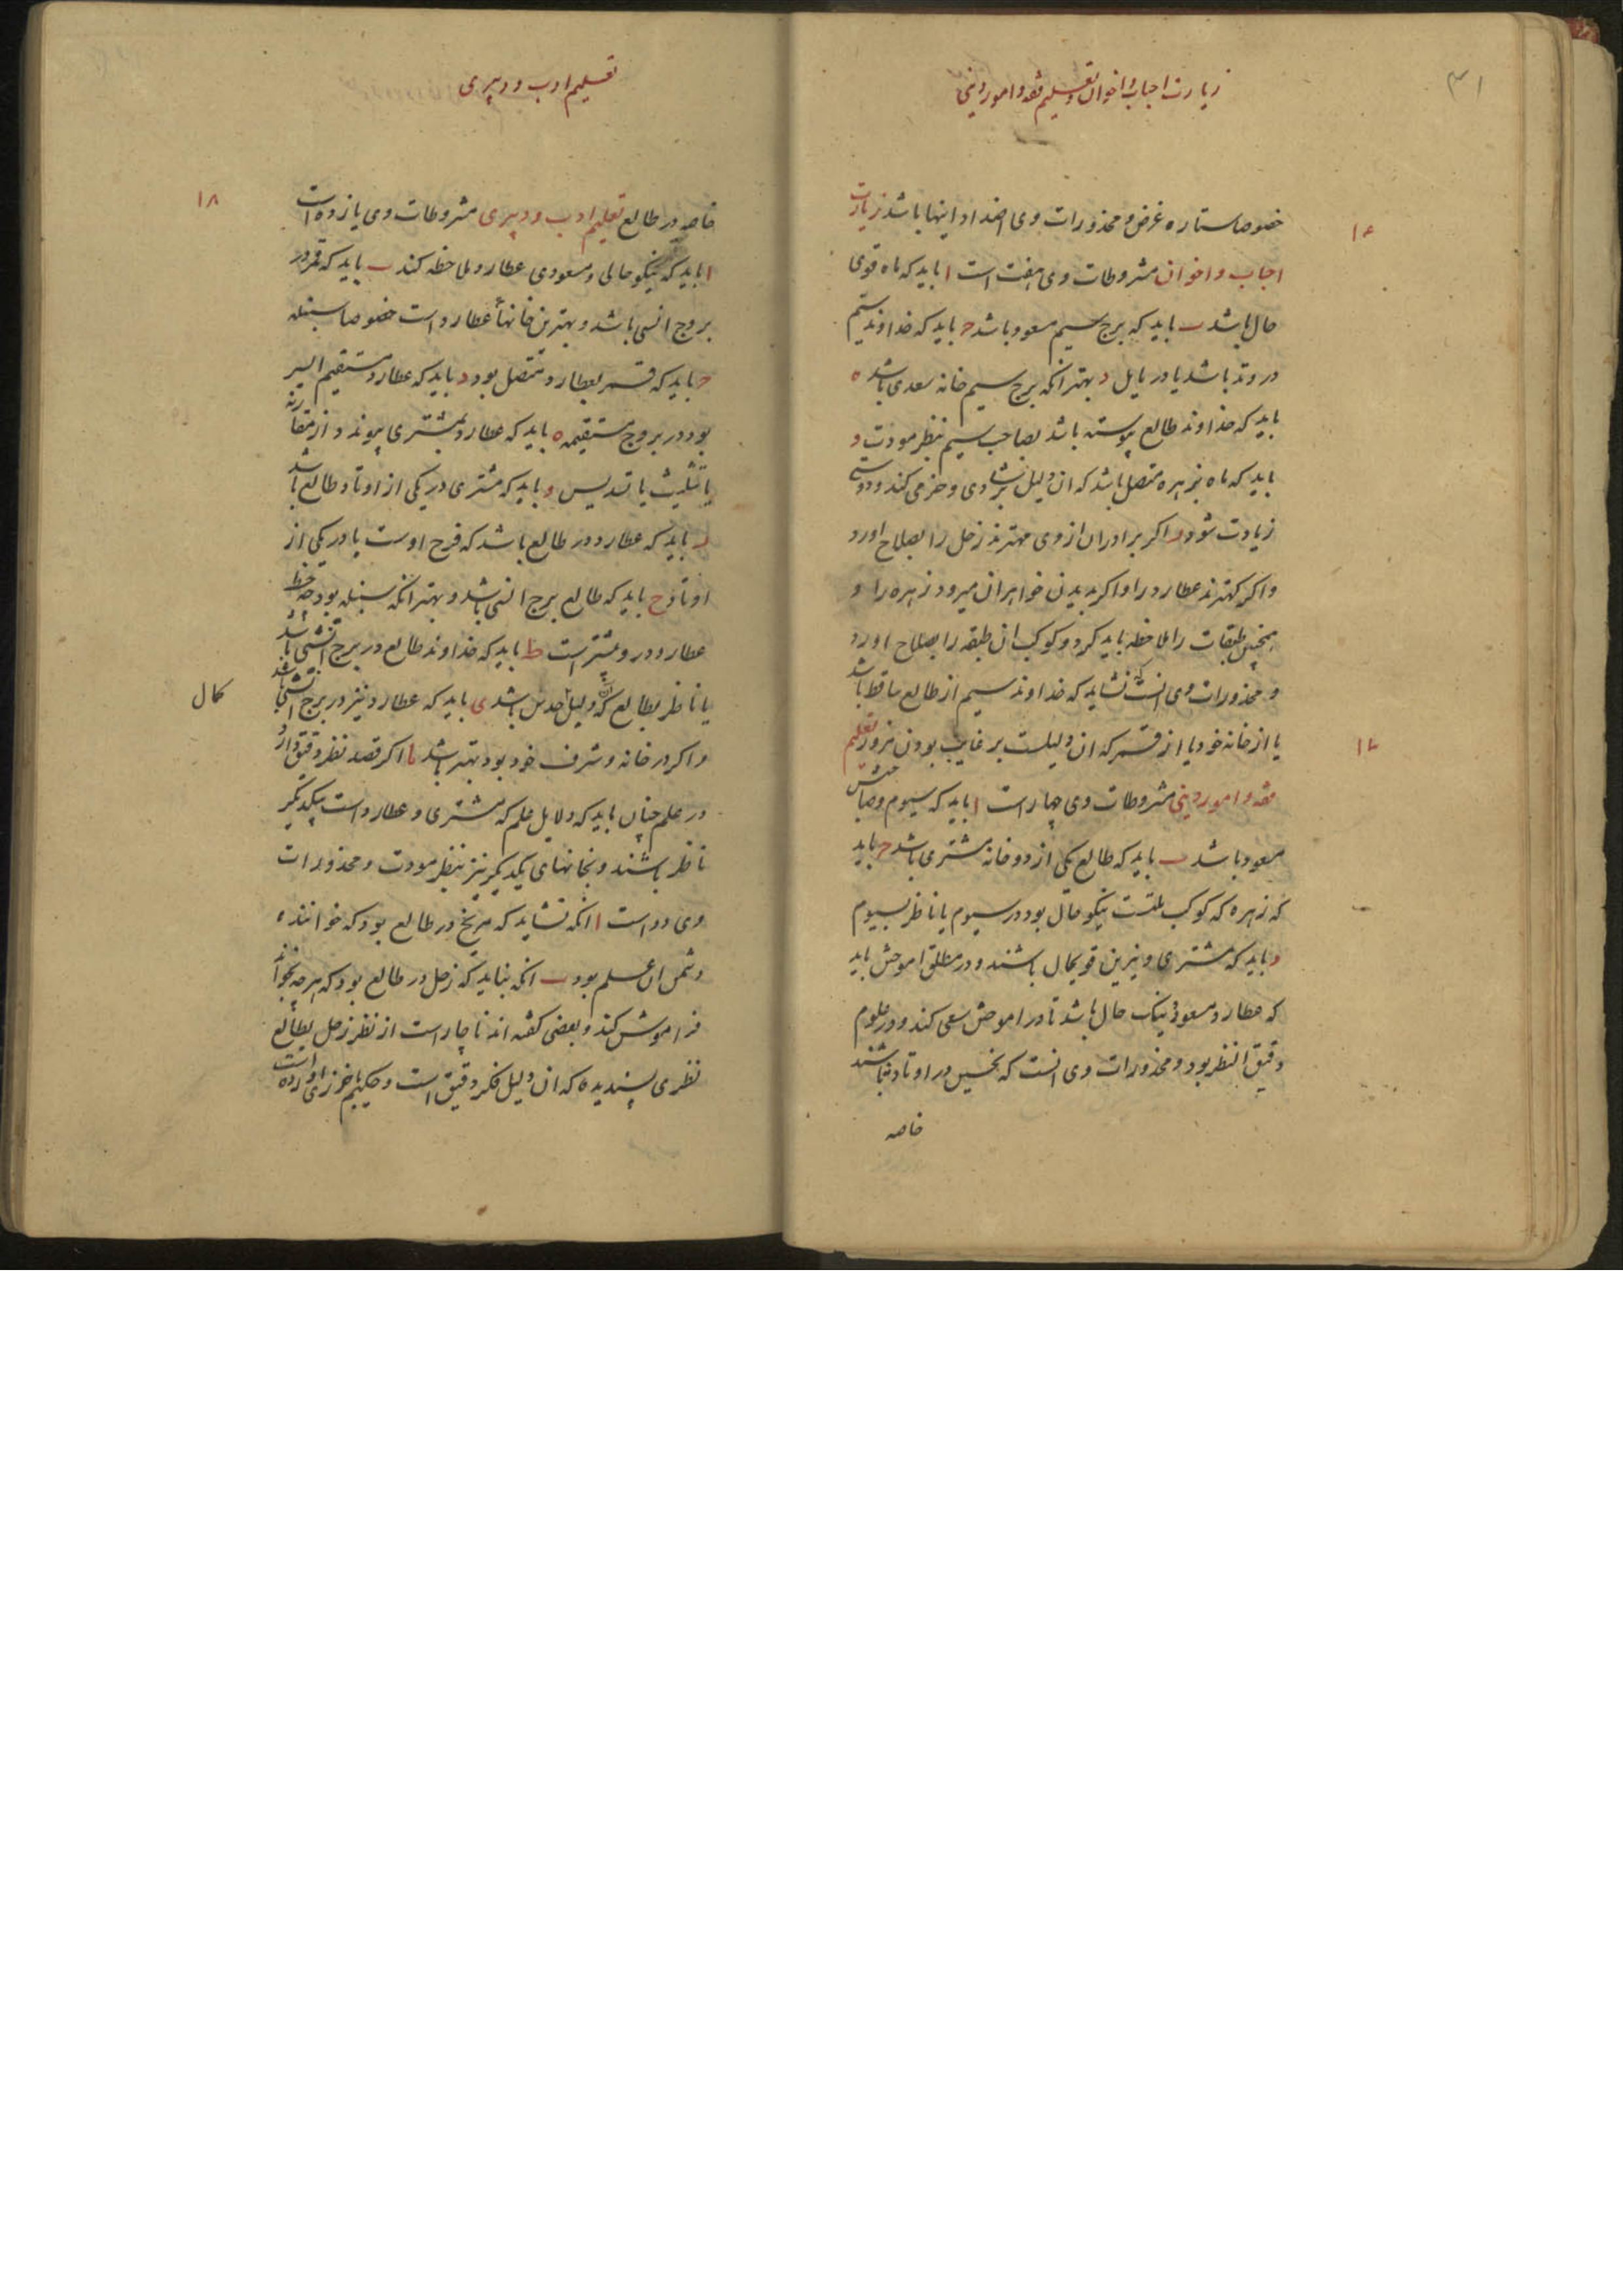 ۳۱
زیارت احباب و اخوان و تعلیم فقه و امور دینی
خصوصا ستاره غرض و محذورات وی اضداد اینها باشد زیارت
۱۶
احباب و اخوان مشروطات وی هفت است ا باید که ماه قوی
حال باشد ب باید که برج سیم مسعود باشد ج باید که خداوند سیم
در وتد باشد یا در مایل د بهتر انکه برج سیم خانه سعدی باشد ه
باید که خداوند طالع پیوسته باشد بصاحب سیم بنظر مودت و
باید که ماه بزهره متصل باشد که ان دلیل بر شادی و خرمی کند و دوستی
زیادت شود ز اکر برادران از وی مهترند زحل را بصلاح اورد
و اکر کهترند عطارد را و اکر بدیدن خواهران میرود زهره را و
همچنین طبقات را ملاحظه باید کرد و کوکب ان طبقه را بصلاح اورد
و محذورات وی انست که نشاید که خداوند سیم از طالع ساقط باشد
یا از خانه خود یا از قمر که ان دلیلست بر غایب بودن مزور تعلیم
۱۷
فقه و امور دینی مشروطات وی چهار است ا باید که سیوم و صاحبش
مسعود باشد ب باید که طالع یکی از دو خانه مشتری باشد ج باید
که زهره که کوکب ملتست نیکو حال بود در سیوم یا ناظر بسیوم
د باید که مشتری و نیرین قویحال باشند و در مطلق اموختن باید
که عطارد مسعود نیک حال باشد تا در اموختن سعی کند و در علوم
دقیق النظر بود و محذورات وی انست که نحسین در اوتاد نباشند
خاصه
تعلیم ادب و دبیری
خاصه در طالع تعلیم ادب و دبیری مشروطات وی یازده است
۱۸
ا باید که نیکو حالی و مسعودی عطارد ملاحظه کند ب باید که قمر در
بروج انسی باشد و بهترین خانهاء عطارد است خصوصا سنبله
ج باید که قمر بعطارد متصل بود د باید که عطارد مستقیم السیر
بود در بروج مستقیمه ه باید که عطارد بمشتری پیوندد از مقارنه
یا تثلیث یا تسدیس و باید که مشتری در یکی از اوتاد طالع باشد
ز باید که عطارد در طالع باشد که فرح اوست یا در یکی از
اوتاد ح باید که طالع برج انسی باشد و بهتر انکه سنبله بود چه حظ
عطارد در و بیشتر است ط باید که خداوند طالع در برج انسی باشد
یا ناظر بطالع که ان دلیل حدس باشد ی باید که عطارد نیز در برج انسی باشد
کمال
و اکر در خانه و شرف خود بود بهتر باشد یا اکر قصد نظر دقیق دارد
در علم چنان باید که دلایل علم که مشتری و عطارد است بیکدیکر
ناظر باشند و بخانهای یکدیکر نیز بنظر مودت و محذورات
وی دو است ا انکه نشاید که مریخ در طالع بود که خواننده
دشمن ان علم بود ب انکه نباید که زحل در طالع بود که هر چه بخواند
فراموش کند و بعضی کفته اند ناچار است از نظر زحل بطالع
نظری پسندیده که ان دلیل فکر دقیق است و حکیم خرزی اورده است